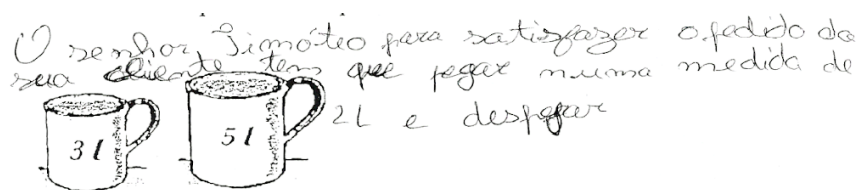 O senhor Timóteo para satisfazer o pedido da
sua cliente tem que pegar numa medida de
2L e
3 l 5 l